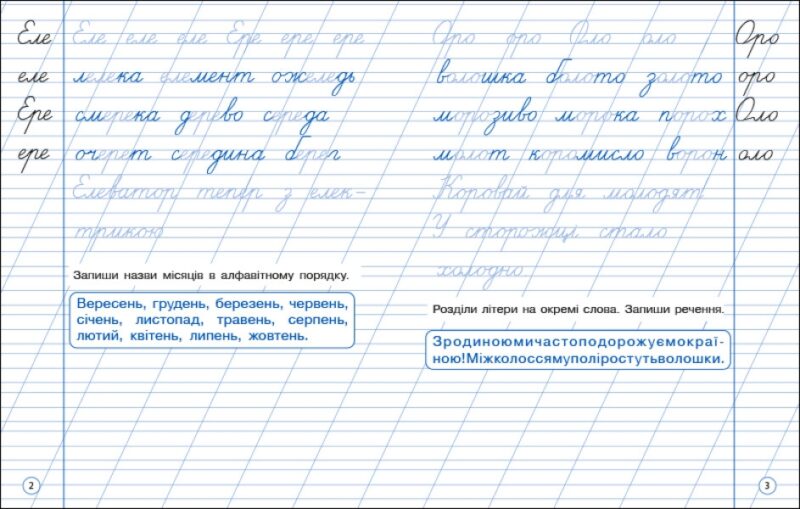 Еле Еле еле еле Ере ере ере
еле лелека елемент ожеледь
Ере смерека дерево середа
ере очерет середина берег
Елеватор тепер з елек–
трикою
Запиши назви місяців в алфавітному порядку.
Вересень, грудень, березень, червень,
січень, листопад, травень, серпень,
лютий, квітень, липень, жовтень.
2
Оро оро Оло оло Оро
волошка болото золото оро
морозиво морока порох Оло
молот коромисло ворон оло
Коровай для молодят
У сторожці стало
холодно
Розділи літери на окремі слова. Запиши речення.
Зродиноюмичастоподорожуємокраї-
ною!Міжколоссямуполіростутьволошки.
3